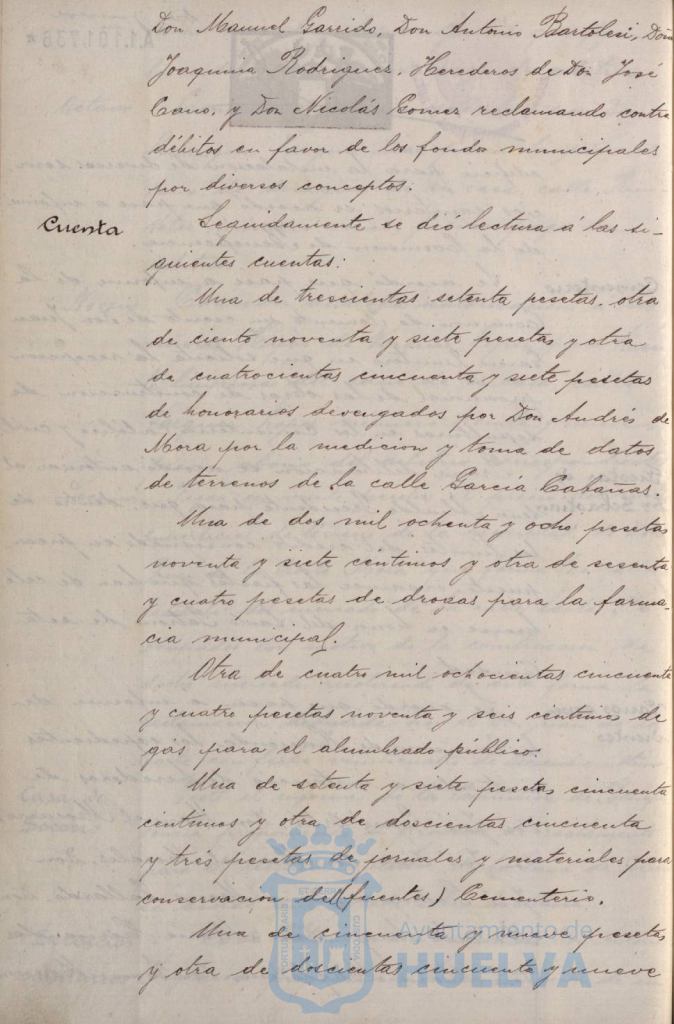 Don Manuel Garrido, Don Antonio Bartolesi, Doña
Joaquina Rodriguez, Herederos de Don José
Cano, y Don Nicolás Gomez reclamando contra
débitos en favor de los fondos municipales
por diversos conceptos.
Cuenta
Seguidamente se dió lectura á las si-
guientes cuentas:
Una de trescientas setenta pesetas, otra
de ciento noventa y siete pesetas y otra
de cuatrocientas cincuenta y siete pesetas
de honorarios devengados por Don Andrés de
Mora por la medicion y toma de datos
de terrenos de la calle García Cabañas.
Una de dos mil ochenta y ocho pesetas
noventa y siete céntimos y otra de sesenta
y cuatro pesetas de drogas para la farma-
cia municipal.
Otra de cuatro mil ochocientas cincuenta
y cuatro pesetas noventa y seis céntimos de
gas para el alumbrado público.
Una de setenta y siete pesetas cincuenta
céntimos y otra de doscientas cincuenta
y trés pesetas de jornales y materiales para
conservacion del (fuentes) Cementerio.
Una de cincuenta y nueve pesetas
y otra de doscientas cincuenta y nueve
Ayuntamiento de
HUELVA